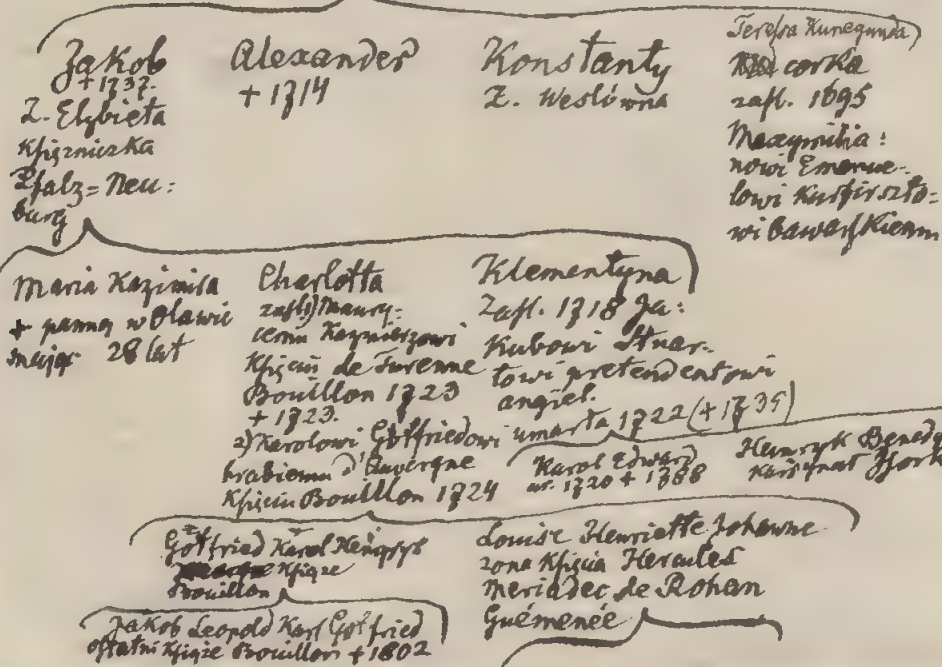 Jakob
+ 1737.
Z. Elzbieta
Kſiężniczka
Pfalz = Neu:
burg
Alexander
+ 1714
Konstanty
Z. Weslówna
Tereſsa Kunegunda
corka
zaſl. 1695
Maxymilia:
nowi Emanue-
lowi Kurfirszto=
wi bawarſkiemu
Maria Kazimira
+ panną w Oławie
mając 28 lat
Charlotta
zaſl 1) Maury-
cemu Kazmierzowi
Kſięciu de Turenne
Bouillon 1723
+ 1723.
2) Karolowi Gotfriedowi
hrabiemu d'Auvergne
Kſięciu Bouillon 1724
Klementyna
Zaſl. 1718 Ja:
kubowi Stuar-
towi pretendentowi
angiel.
umarła 1722 (+ 1735)
Karol Edward
ur. 1720 + 1788
Henryk Bened
Kardynał Yjork
Gotfried Karol Henryk
Kſiąże
Bouillon
Louise Henriette Johanne
zona Kſięcia Hercules
Meriadec de Rohan
Guémenée
Jakob Leopold Karl Gotfried
oſtatni Kſiąże Bouillon + 1802